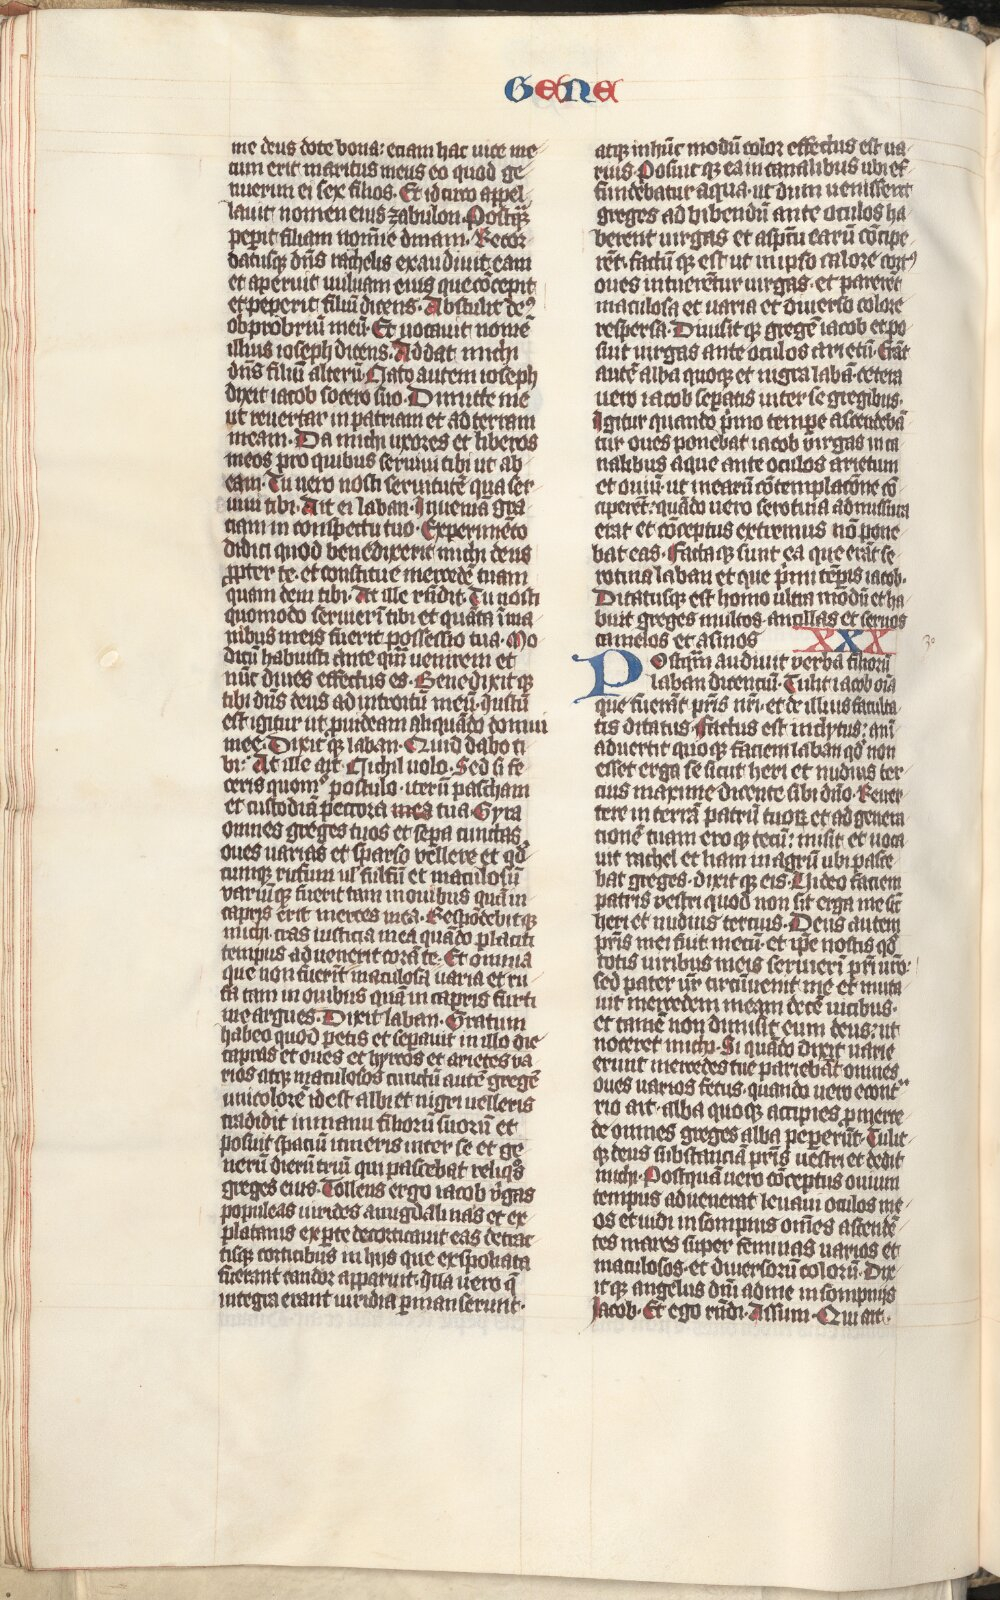 GENE
me deus dote bona: etiam hac vice me
cum erit maritus meus eo quod ge
nuerim ei sex filios. Et idcirco appel
lavit nomen eius zabulon. Postqͣ
peperit filiam noı̄e dinam. Recor
datusqꝫ dn̄s rachelis exaudivit eam
et aperuit vulvam eius que cōcepit
et peperit filiū dicens. Abstulit deꝰ
obprobriū meū. Et vocavit nomē
illius ioseph dicens. Addat michi
dn̄s filiū alterū. Nato autem ioseph
dixit iacob socero suo. Dimitte me
ut revertar in patriam et ad terram
meam. Da michi uxores et liberos
meos pro quibus servivi tibi ut ab
eam. Tu vero nosti servitutē qua ser
vivi tibi. Ait ei laban. Inveniā gra
ciam in conspectu tuo. Experimēto
didici quod benedixerit michi deus
ꝓpter te. et constitue mercedē tuam
quam dem tibi. At ille rn̄dit. Tu nosti
quomodo servierī tibi et quāta ī ma
nibus meis fuerit possessio tua. Mo
dicū habuisti ante qm̄ venirem et
nūc dives effectus es. Benedixit qꝫ
tibi dn̄s deus ad introitū meū. Iustū
est igitur ut ꝓvideam aliquādo domui
mee. Dixit qꝫ laban. Quid dabo ti
bi. At ille ait. Nichil volo. Sed si fe
ceris quomͦ postulo. iterū pascham
et custodiā peccora mea tua. Gyra
omnes greges tuos et sepa cunctas
oues varias et sparso vellere et qd̄
cumqꝫ rufum ul' fulfū et maculosū
variūqꝫ fuerit tam in ouibus quā in
capris erit merces mea. Respōdebitqꝫ
michi cras iusticia mea quādo placiti
tempus advenerit corā te. Et omnia
que non fuerīt maculosa varia et ru
fa tam in ovibus quā in capris furti
me argues. Dixit laban. Gratum
habeo quod petis et separavit in illo die
capras et oves et hyrcos et arietes va
rios atqꝫ maculosos cunctū autē gregē
unicolorē id est albi et nigri velleris
tradidit in manu filiorū suorū et
posuit spaciū itineris inter se et ge
nerū dierū triū qui pascebat reliqͦs
greges eius. Tollens ergo iacob v̓gas
populeas virides amigdalinas et ex
platanis ex ꝑte decorticavit eas detrac
tisqꝫ corticibus in hijs que expoliata
fuerant candor apparuit. illa vero q̄
integra erant viridia ꝑmanserunt.
atqꝫ in hūc modū color effectus est va
rius. Posuit qꝫ ea in canalibus ubi ef
fundebatur aqua. ut dum venissent
greges ad bibendū ante oculos ha
berent virgas et aspectu earū cōcipe
rēt. factū qꝫ est ut in ipso calore coitꝰ
oves intuerētur virgas. et parerēt
maculosa et varia et diverso colore
respersa. Divisit qꝫ gregē iacob et po
suit virgas ante oculos arietū. Erāt
autē alba quoqꝫ et nigra labā. cetera
vero iacob sepatis inter se gregibus.
Igitur quando p̄mo tempe ascendebā
tur oves ponebat iacob virgas in ca
nalibus aque ante oculos arietum
et ouiū. ut in earū cōtemplacōne cō
ciperēt. quādo vero serotina admissura
erat et cōceptus extremus nō pone
bat eas. Factaqꝫ sunt ea que erāt se
rotina laban et que p̄mi tēpis iacob.
Ditatusqꝫ est homo ultra modū et ha
buit greges multos. ancillas et servos
camelos et asinos XXX
Postqm̄ audivit verba filiorū
laban dicenciū. Tulit iacob oīa
que fuerāt pr̄is nr̄i. et de illius faculta
tis ditatus. Factus est inclytus: ani
advertit quoqꝫ faciem laban qd̄ non
esset erga se sicut heri et nudius ter
cius maxime dicente sibi dn̄o. Rever
tere in terrā patrū tuoꝝ et ad genera
cionē tuam eroqꝫ tecū: misit et voca
vit rachel et liam in agrū ubi pasce
bat greges. dixit qꝫ eis. Video faciem
patris vestri quod non sit erga me sic̄
heri et nudius tercius. Deus autem
pr̄is mei fuit mecū. et ip̄e nostis qd̄
totis viribus meis servierī pr̄i vr̄o:
sed pater vr̄ circūvenit me et muta
vit mercedem meam decē vicibus.
et tamē non dimisit eum deus: ut
noceret michi. Si quādo dixit varie
erunt mercedes tue pariebāt omnes
oves varios fetus. quando vero econtͣ
rio ait. alba quoqꝫ accipies ꝑ merce
de omnes greges alba pepererūt. Tulit
qꝫ deus substanciā pr̄is vestri et dedit
michi. Postquā vero cōceptus ovium
tempus advenerat levavi oculos me
os et vidi in sompnis om̄es ascendē
tes mares super feminas varios et
maculosos. et diversorū colorū. Dix
it qꝫ angelus dn̄i ad me in sompnijs
Jacob. Et ego rn̄di. Assum. Qui ait.